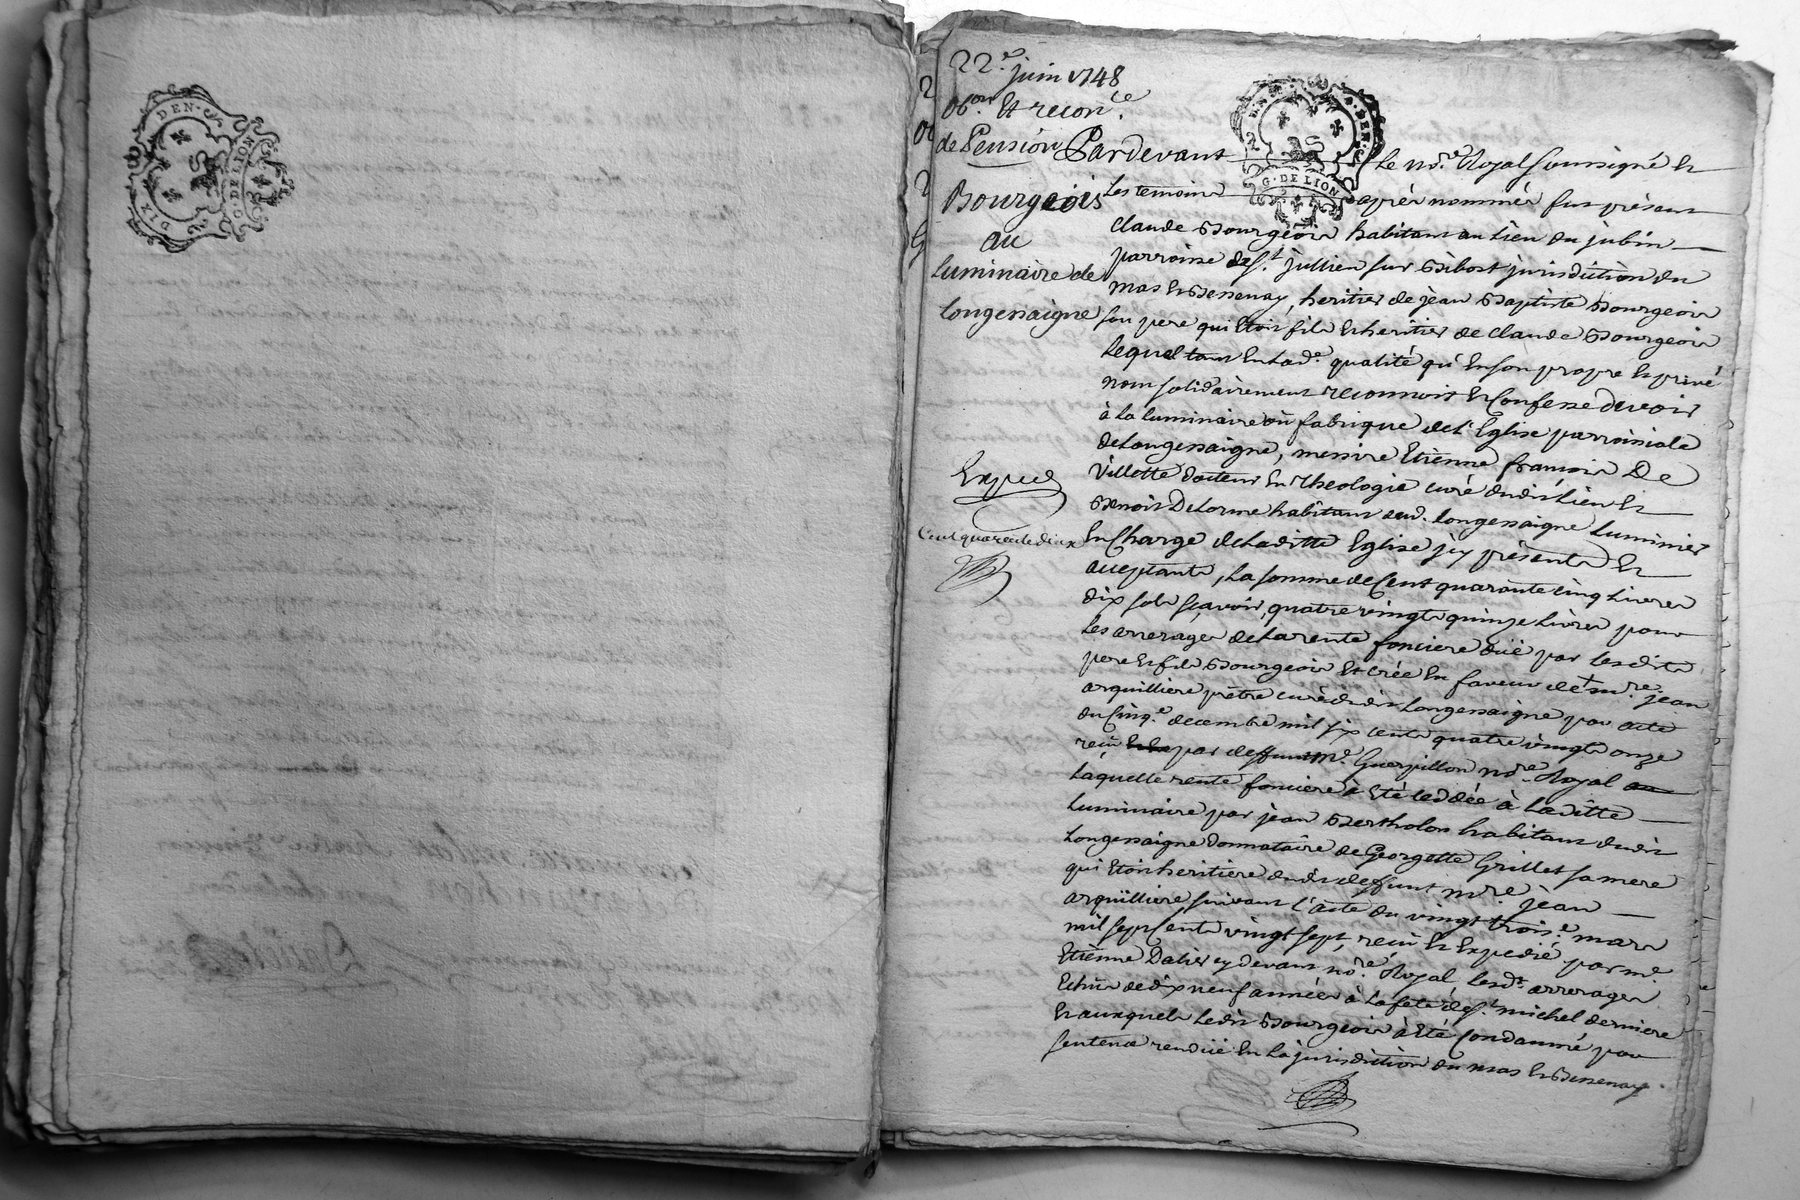 DIX DEN. G. DE LION
22.e juin 1748
obon. Et reconce.
de Pension
Bourgeois
au
luminaire de
longessaigne
Expedié
Cent quarente deux
2 DEN. 2 DEN. G. DE LION
Pardevant Le nore. Royal soussigné et
Les temoins après nommés fut présent
Claude Bourgeois habitant au Lieu du jubin
parroisse de St. jullien sur Bibost jurisdiction du
mas et Bessenay, heritier de jean Baptiste Bourgeois
son pere qui Etoit fils et heritier de Claude Bourgeois
Lequel tant en Lade. qualité qu'en son propre et privé
nom solidairement reconnoit et Confesse devoir
à La luminaire où fabrique de L'Eglise parroissiale
de Longessaigne, messire Etienne françois De
Villette docteur En Theologie curé dudit Lieu et
Benoit Delorme habitant aud. Longessaigne Luminier
En Charge de Laditte Eglise jcy présents et
acceptants, La somme de Cent quarante cinq Livres
dix sols sçavoir, quatre vingts quinze Livres pour
Les arrerages de La rente fonciere düe par Lesdits
pere et fils Bourgeois Et créé En faveur de mre. jean
arquilliere prêtre curé dudit Longessaigne par acte
du Cinqe. decembre mil six cents quatre vingts onze
recu par deffunt me. Guerpillon nore. Royal
Laquelle rente fonciere a Eté Ceddée à Laditte
Luminaire par jean Bertholon habitant dudit
Longessaigne donnataire de Georgette Grillet sa mere
qui Etoit heritiere dudit deffunt mre. jean
arquilliere suivant L'acte du vingt trois.e mars
mil sept cents vingt sept, recu et Expedié par me.
Etienne Dalier cy devant nore. Royal Lesdt. arrerages
Echus de dix neuf années à La fete de St. michel derniere
Et auxquels Ledit Bourgeois à Eté Condamné par
Sentence rendüe En La jurisdiction du mas et Bessenay